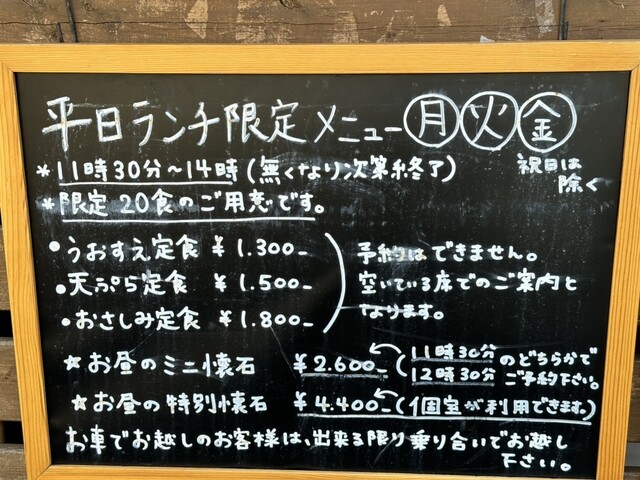 平日ランチ限定メニュー 月 火 金
*11時30分〜14時(無くなり次第終了) 祝日は除く
*限定20食のご用意です。
・うおすえ定食 ¥1.300-
・天ぷら定食 ¥1.500-
・おさしみ定食 ¥1.800-
予約はできません。
空いている席でのご案内と
なります。
☆お昼のミニ懐石 ¥2.600- (11時30分 12時30分 のどちらかでご予約下さい。)
☆お昼の特別懐石 ¥4.400- (個室が利用できます。)
お車でお越しのお客様は、出来る限り乗り合いでお越し
下さい。